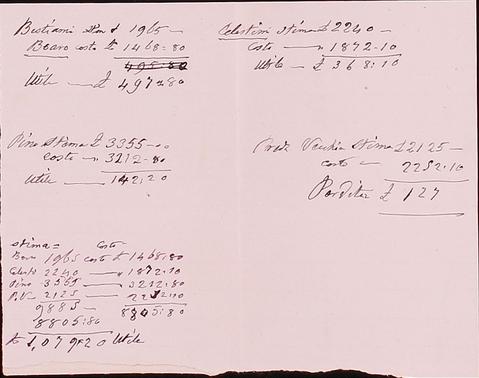 Bestiami Stima £ 1965 —
Bovaro costa £ 1468:80
495:80
Utile — £ 497:80
Celestini Stima £ 2240 —
Costo — " 1872-10
Utile — £ 368:10
Pino Stima £ 3355 —
costo — " 3212-80
Utile — 142:20
Vecchia Stima £ 2125 —
costo — 2252.10
Perdita £ 127
Stima = Costo
Bovo 1965 costo £ 1468:80
Celesti 2240 — " 1872.10
Pino 3555 — " 3212:80
P.V. 2125 — 2252:10
9885 — 8805:80
8805:80
£ 1,079:20 Utile